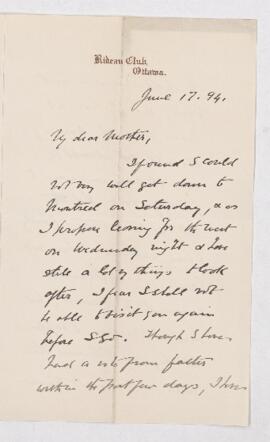 Rideau Club,
Ottawa.
June 17. 94.
My dear Mother,
I found I could
not very well get down to
Montreal on Saturday, & as
I propose leaving for the west
on Wednesday night & have
still a lot of things to look
after, I fear I shall not
be able to visit you again
before I go. Though I have
had a note from father
within the past few days, I have